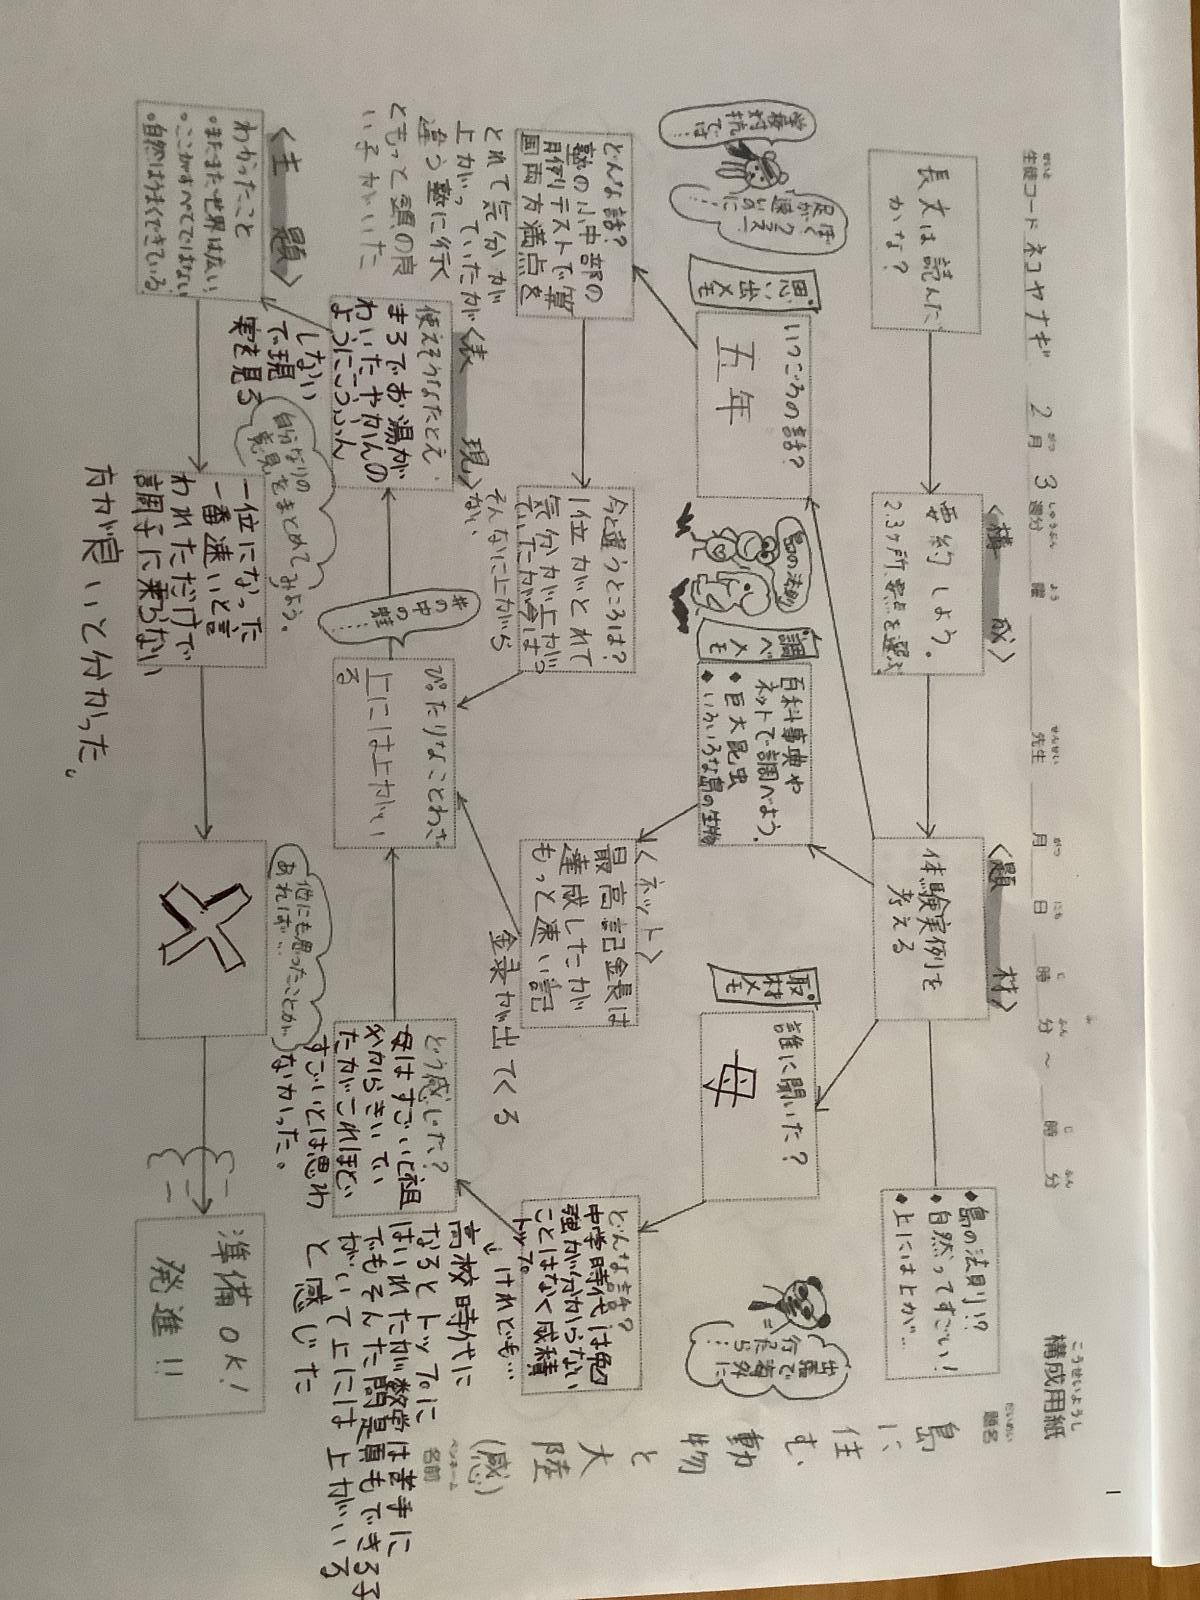 構成用紙
こうせいようし
題名
だいめい
島に住む動物と大陸(感)
ペンネーム
名前
生徒コード ネコヤナギ 2月 3週分 曜 先生 月 日 時 分 ~ 時 分
せいと
がつ
しゅうぶん
よう
せんせい
がつ
にち
じ
ふん
じ
ふん
長文は読んだ
かな?
〈構成〉
要約しよう。
2.3ヶ所、要点を選ぶ
〈題材〉
体験実例を
考える
◆島の法則!?
◆自然ってすごい!
◆上には上が…
学校対
抗では…
ぼく
足が
速いのに
思い出メモ
いつごろの話?
五年
島の法則
調べメモ
百科事典や
ネットで調べよう。
◆巨大昆虫
◆いろいろな島の生物
取材メモ
誰に聞いた?
母
出張で
海外に
行ったら…
どんな話?
塾の小中部の
月例テストで算
国両方満点を
とれて気分が
上がっていたが
違う塾に行く
ともっと頭の良
い子がいた
今と違うところは?
1位がとれて
気分が上がっ
そんなに上がら
ない
〈ネット〉
最高記
達成したが
もっと速い記
録が出てくる
どんな話?
中学時代は勉
強が分からない
ことはなく成績
トップ。
↓けれども…
高校時代に
なるとトップ70に
はいれたが数学は苦手に
でもそんな問題もできる子
がいて上には上がいる
と感じた
〈表現〉
使えそうなたとえ
まるでお湯が
わいたやかんの
ようにこうふん
しない
で現
実を見る
井の中の蛙……
ぴったりなことわざ
上には上がい
る
どう感じた?
母はすごいと祖
父からきいてい
たがこれほど
すごいとは思わ
なかった。
〈主題〉
わかったこと
。まだまだ世界は広い。
。ここがすべてではない
。自然はうまくできている。
自分なりの
意見をまとめてみよう。
一位になった
一番速いと言
われただけで
調子に乗らない
方が良いと分かった。
他にも思ったことが
あれば…
準備OK!
発進!!
1